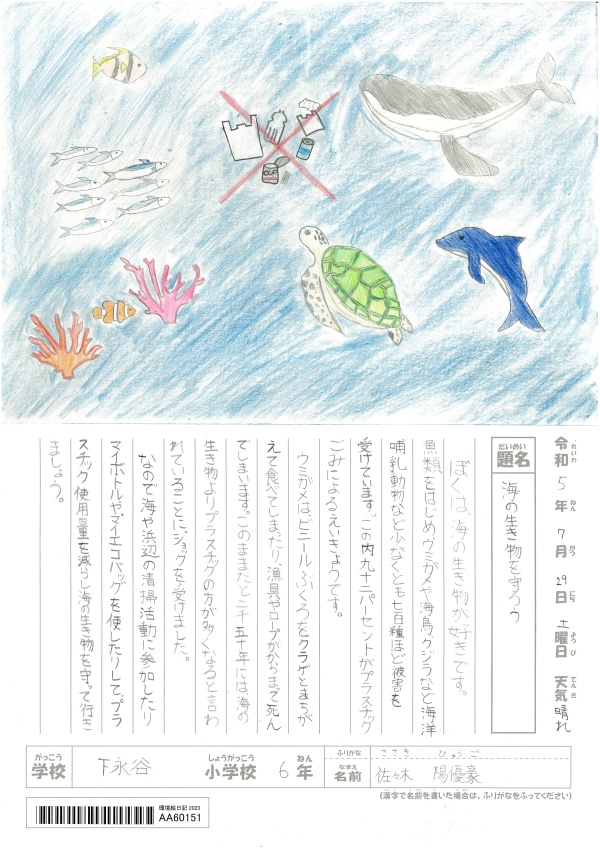 令和5年7月29日 土曜日 天気 晴れ
れいわ ねん がつ にち ようび てんき
だいめい
題名 海の生き物を守ろう
ぼくは、海の生き物が好きです。
魚類をはじめウミガメや海鳥、クジラなど海洋
哺乳動物など少なくとも七百種ほど被害を
受けています。この内九十二パーセントがプラスチック
ごみによるえいきょうです。
ウミガメは、ビニールぶくろをクラゲとまちが
えて食べてしまったり、漁具やロープがからまって死ん
でしまいます。このままだと二千五十年には、海の
生き物よりプラスチックの方が多くなると言わ
れていることに、ショックを受けました。
なので海や浜辺の清掃活動に参加したり
マイボトルや、マイエコバッグを使したりして、プラ
スチック使用量を減らし海の生き物を守って行き
ましょう。
がっこう しょうがっこう ねん
学校 下永谷 小学校 6年
ふりがな ささき ひゅうご
なまえ
名前 佐々木 陽優豪
(漢字で名前を書いた場合は、ふりがなをふってください)
環境絵日記 2023
AA60151